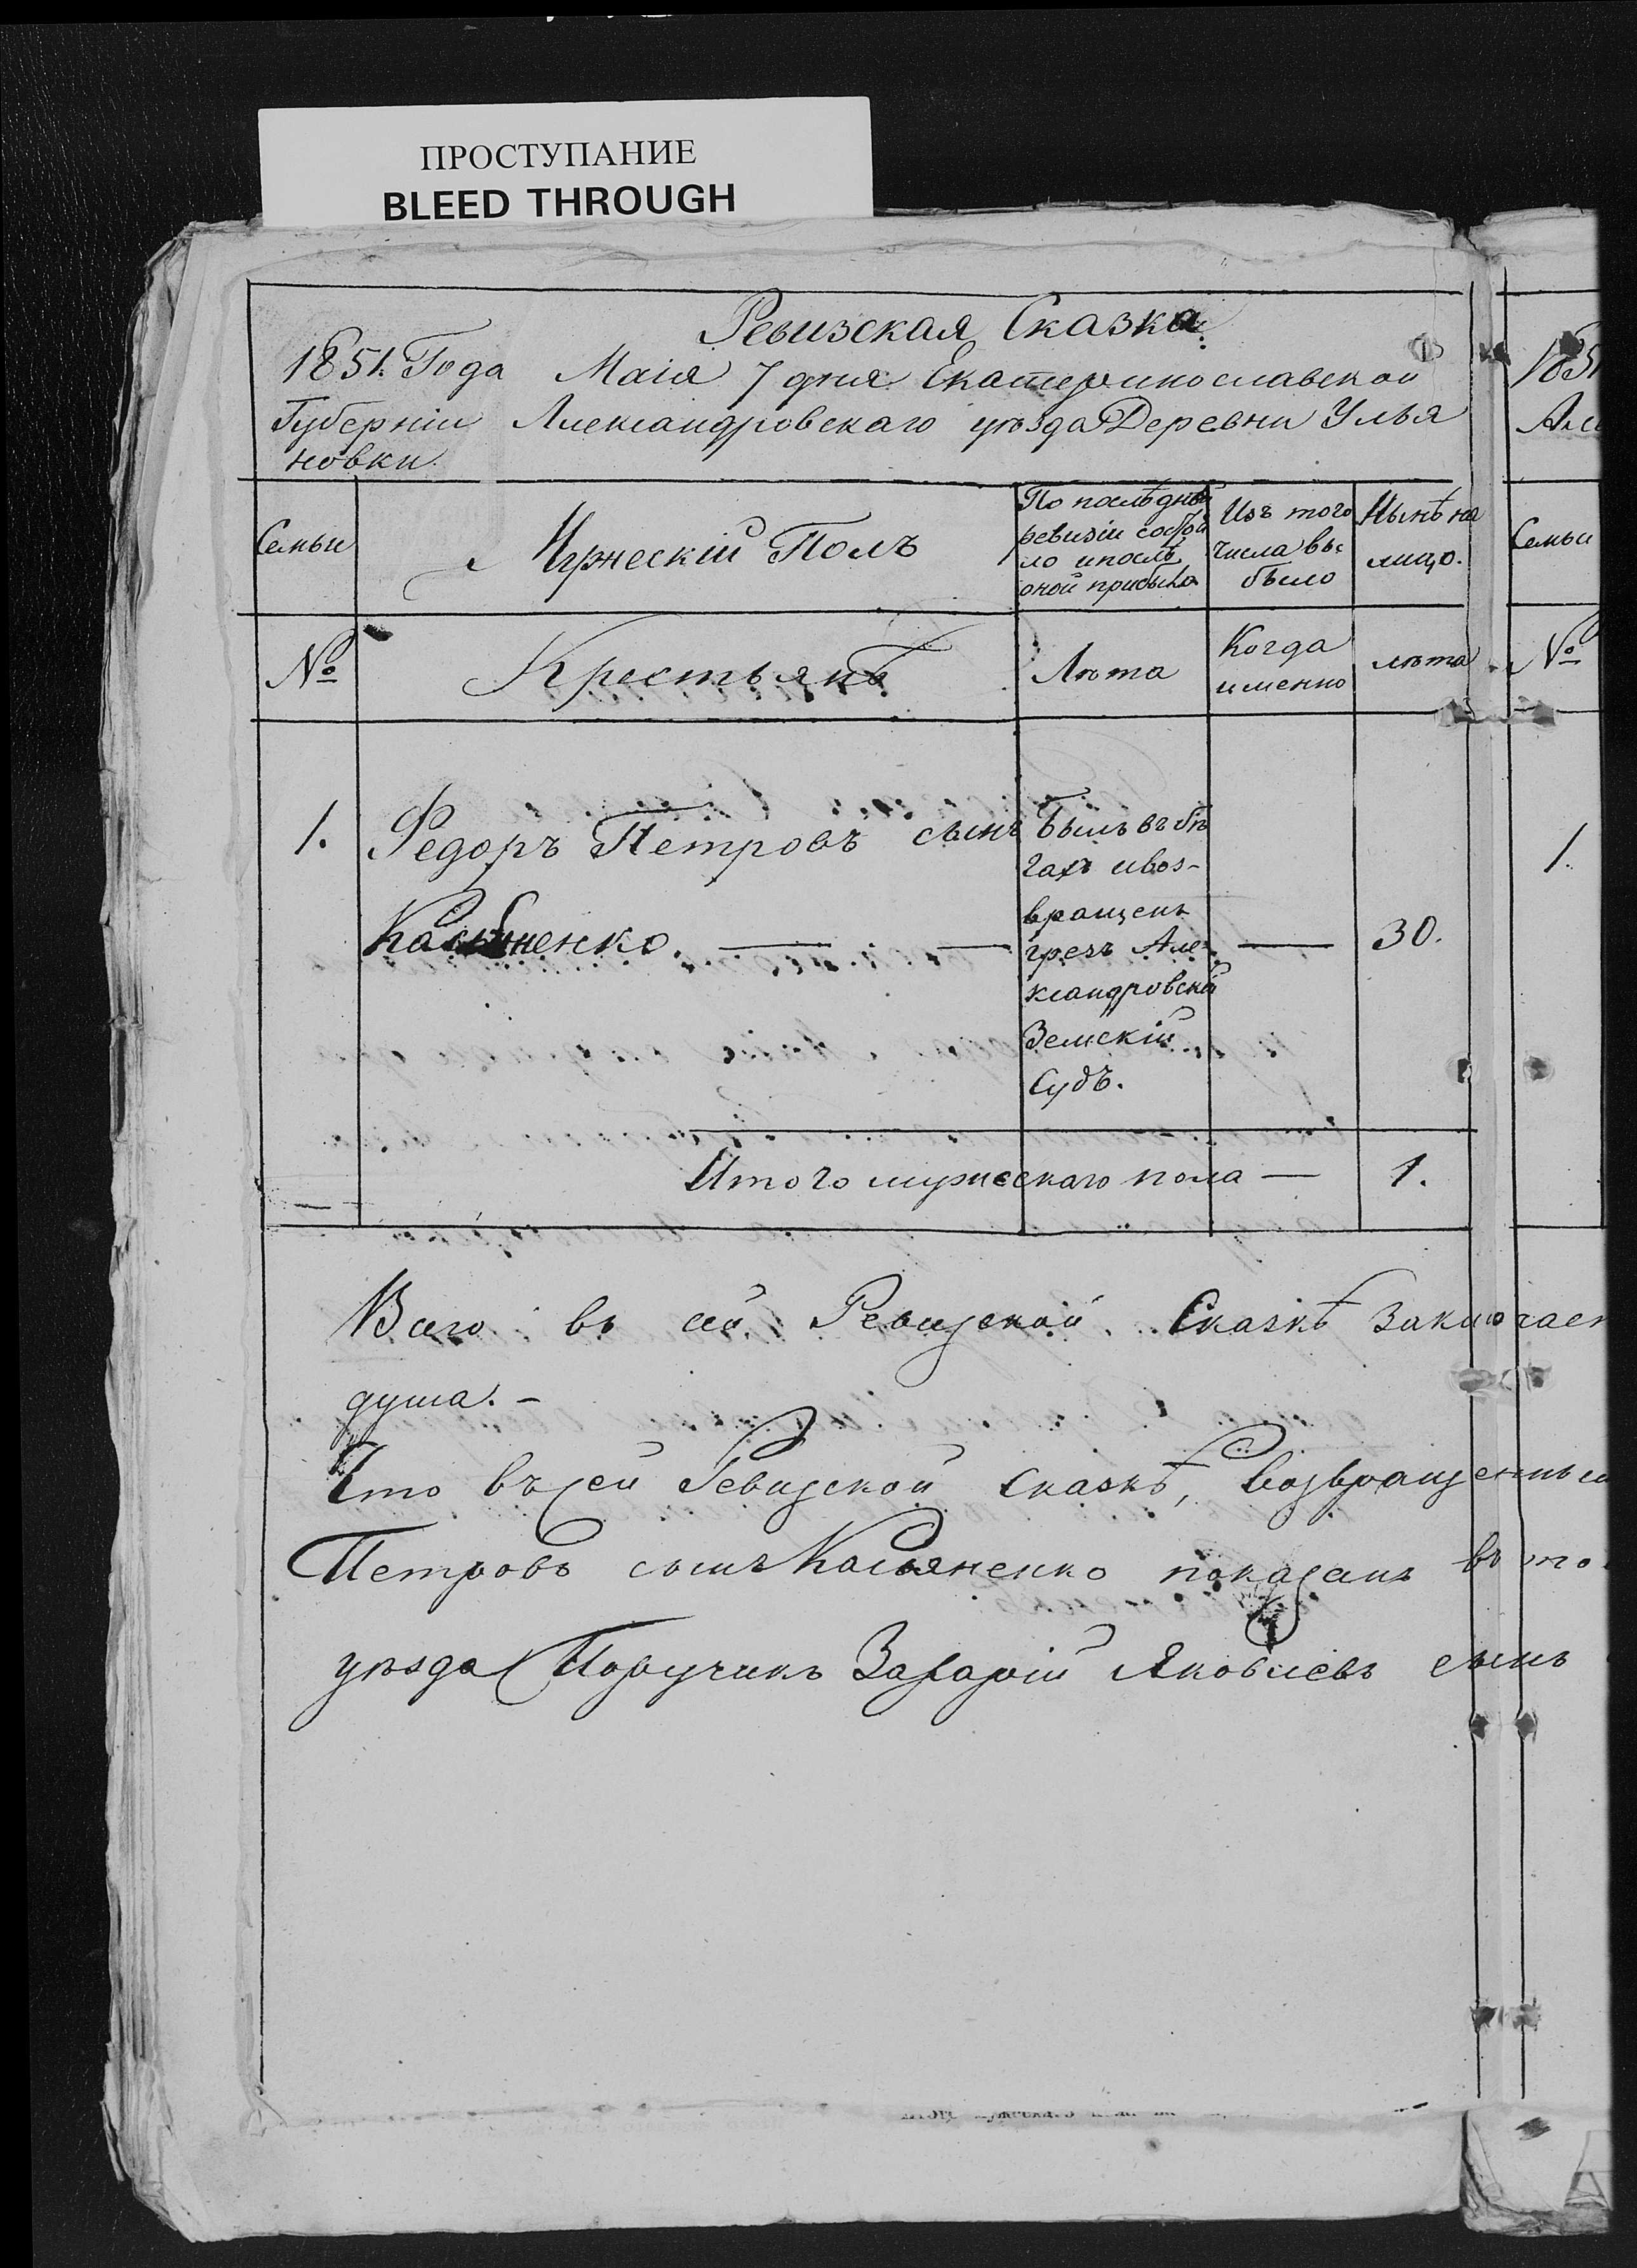 ПРОСТУПАНИЕ
BLEED THROUGH
Ревизская Сказка.
1851. Года Маія 7 дня Екатеринославской
Губерніи Александровскаго уѣзда Деревни Улья
новки.
Семьи
Мужескій Полъ
По послѣдней
ревизіи состоя
ло и послѣ
оной прибыло
Изъ того
числа вы
было
Нынѣ на
лицо.
№
Крестьянъ
Лѣта
Когда
именно
лѣта
1.
Федоръ Петровъ сынъ
Касьяненко.
былъ въ бѣ
гахъ и воз-
вращенъ
чрезъ Але-
ксандровскій
Земскій
Судъ.
30.
Итого мужескаго пола — 1.
Всего въ сей Ревизской Сказкѣ заключает
душа. –
Что въ сей Ревизской Сказкѣ, возвращенный
Петровъ сынъ Касьяненко показанъ въ то
уѣзда Поручикъ Захарій Яковлевъ сынъ
1851
Але
Семьи
№
1.